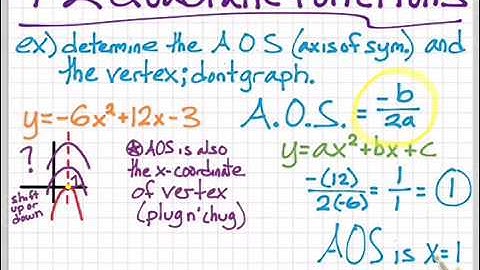 Quadratic Functions
ex) determine the A O S (axis of sym.) and
the vertex; dont graph.
y=-6x²+12x-3
A.O.S. = -b/2a
y=ax²+bx+c
* AOS is also
the x-coordinate
of vertex
(plug n' chug)
?
1
shift
up or
down
-(12)/2(-6) = 1/1 = 1
AOS is x=1